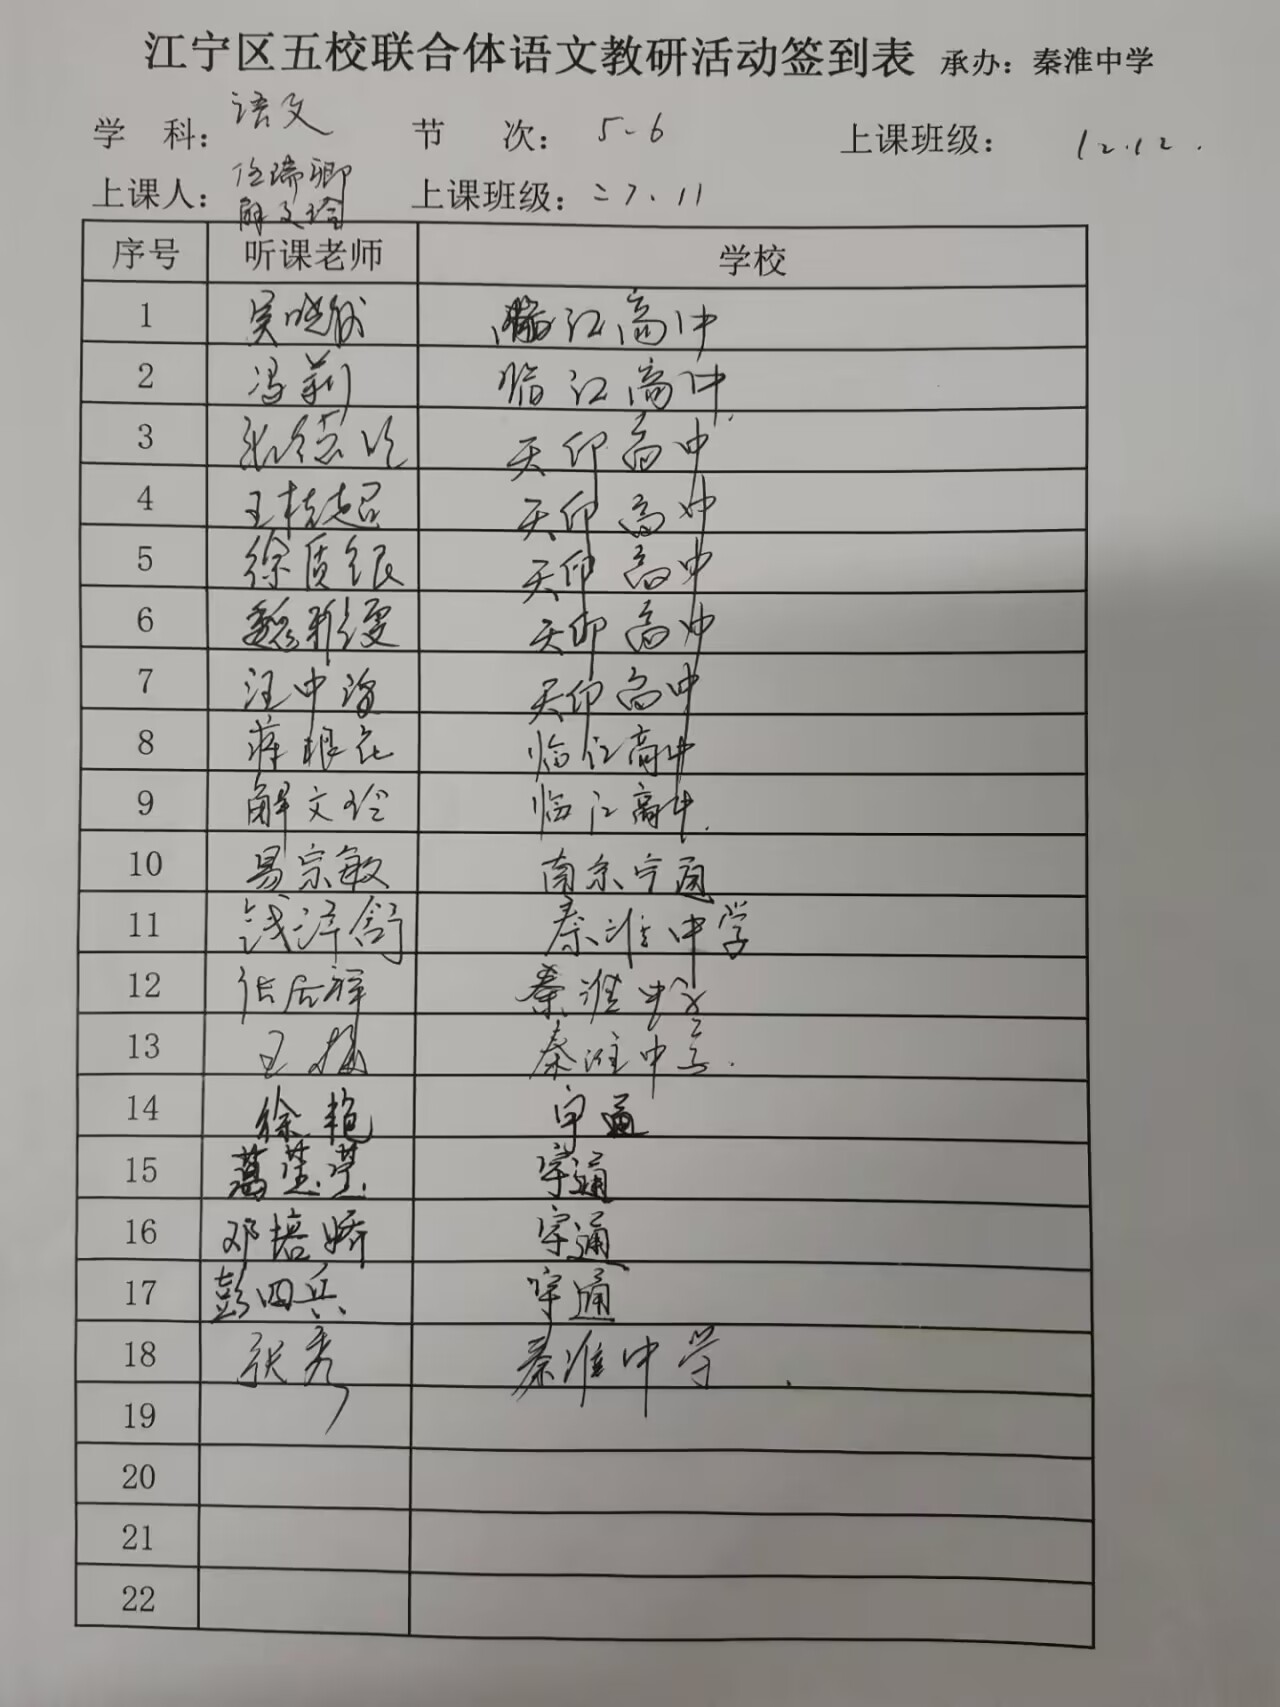 江宁区五校联合体语文教研活动签到表 承办：秦淮中学
学 科： 语文 节 次： 5-6 上课班级： 12.12.
上课人： 任瑞卿 解文玲 上课班级： 二7.11
序号 听课老师 学校
1 吴晓 临江高中
2 冯莉 临江高中
3 天印高中
4 王桂超 天印高中
5 徐质银 天印高中
6 魏雅雯 天印高中
7 汪中 天印高中
8 蒋根花 临江高中
9 解文玲 临江高中
10 易宗敏 南京宇通
11 钱泽舒 秦淮中学
12 祥 秦淮中学
13 王梅 秦淮中学
14 徐艳 宇通
15 葛慧莹 宇通
16 邓培娇 宇通
17 彭四兵 宇通
18 张秀 秦淮中学
19
20
21
22